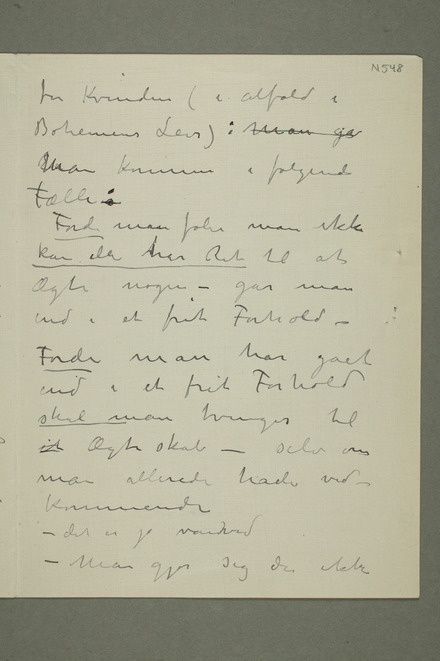 N548
for Kvinden (i alfald i
Bohemens Leir) : man ga
Man kommer i følgende
Fælle :
Fordi man føler man ikke
kan eller har Ret til at
Ægte nogen – gar man
ind i et frit Forhold –
Fordi man har gaet
ind i et frit Forhold
skal man tvinges til
et Ægteskab – selv om
man allerede hader ved-
kommende
– det er jo vanvid
– Man gjør sig da ikke